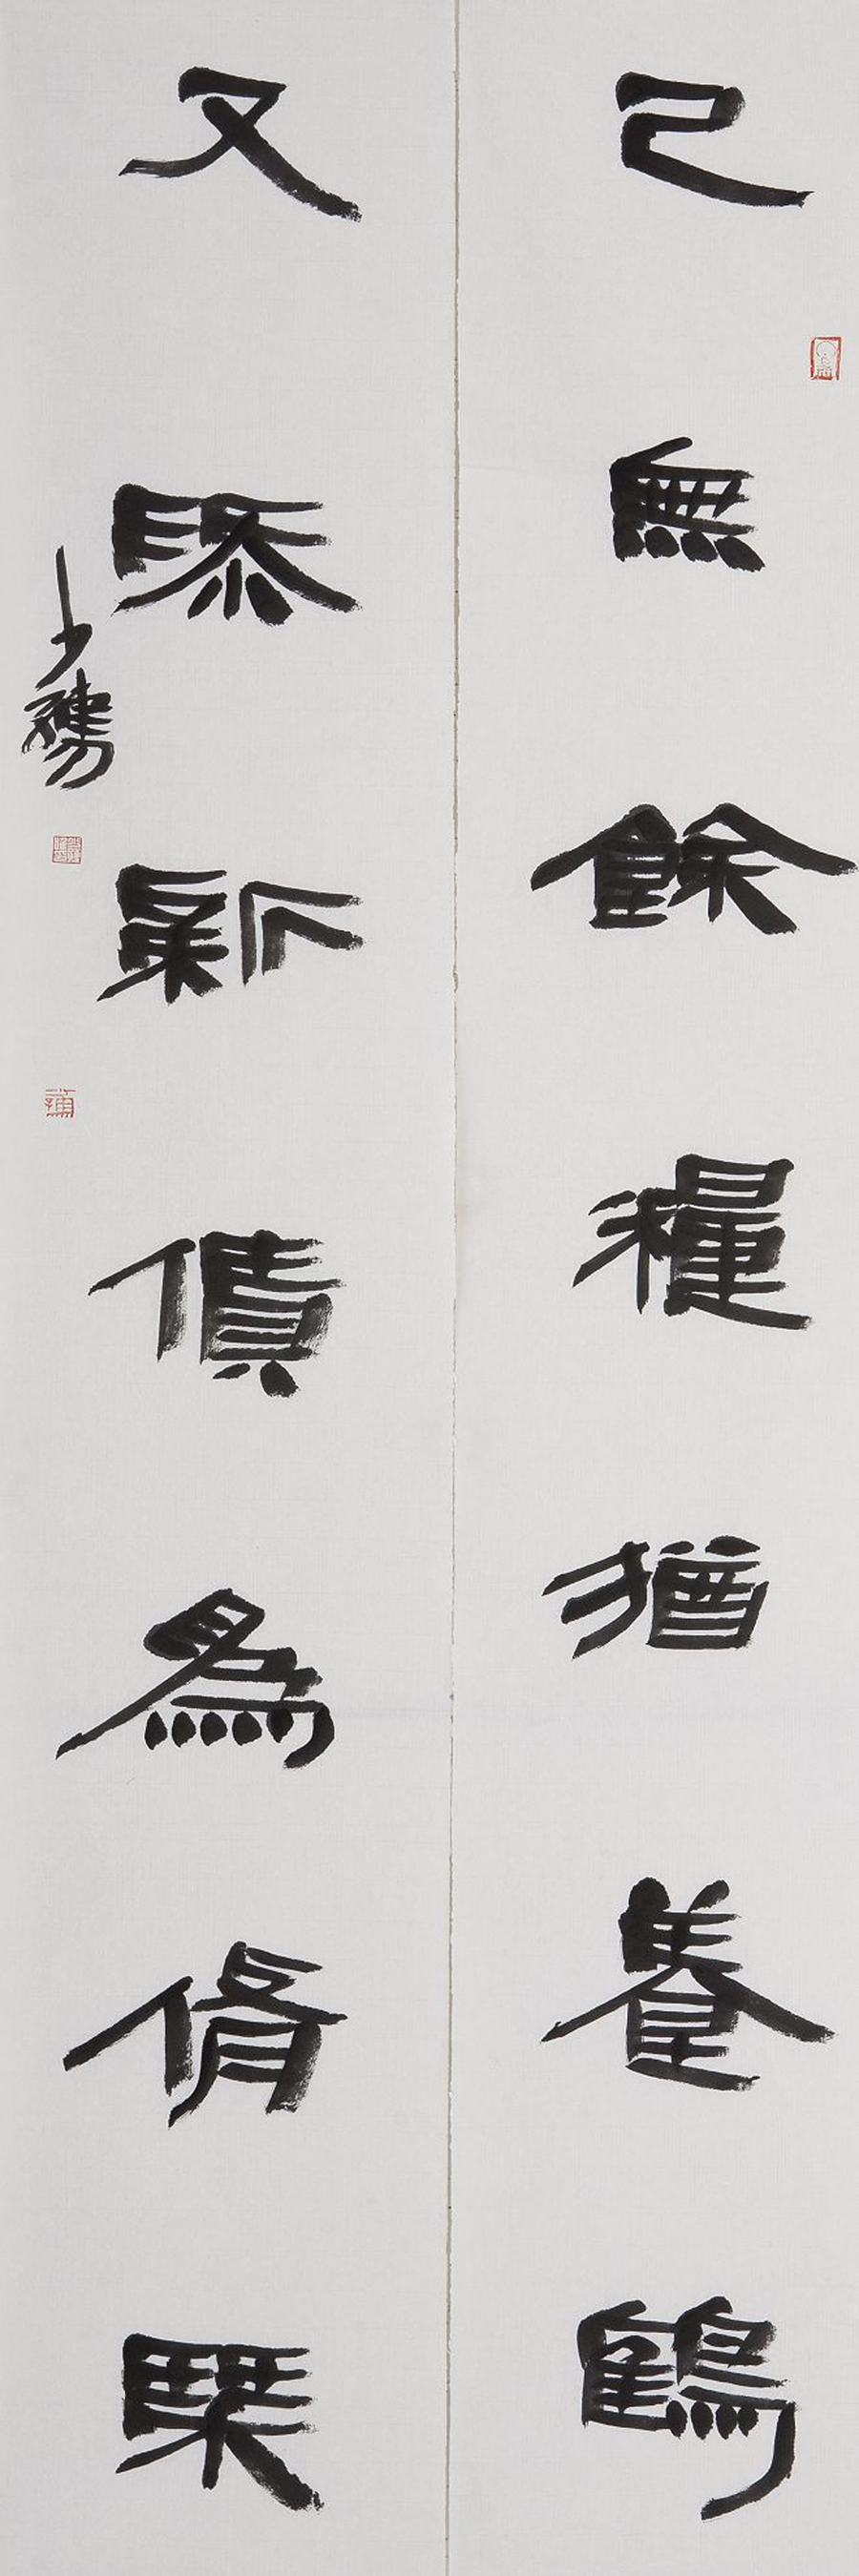 已無餘糧猶養鶴
又添新債為脩琹